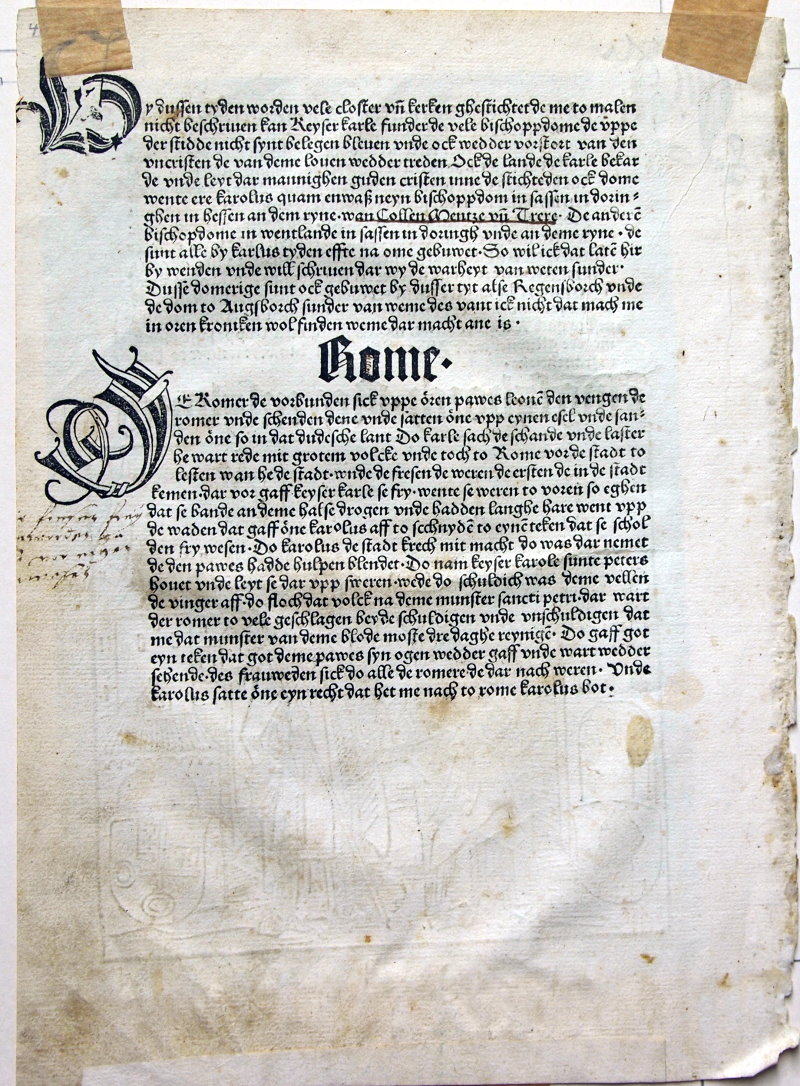 4
By dussen tyden worden vele closter vn̄ kerken ghestichtet de me to malen
nicht beschriuen kan Keyser karle funderde vele bischoppdome de vppe
der stidde nicht synt belegen bleuen vnde ock wedder vorstort van den
vncristen de van deme louen wedder treden Ock de lande de karle bekar
de vnde leyt dar mannighen guden cristen inne de stichteden ock dome
wente ere karolus quam enwaß neyn bischoppdom in sassen in dorin⸗
ghen in hessen an dem ryne·wan Collen Mentze vn̄ Trere· De ander ē
bischopdome in wentlande in sassen in doringh vnde an deme ryne · de
sunt alle by karlus tyden effte na ome gebuwet·So wil ick dat latē hir
by wenden vnde will schriuen dar wy de warheyt van weten sunder·
Dusse domerige sunt ock gebuwet by dusser tyt alse Regensborch vnde
de dom to Augsborch sunder van weme des vant ick nicht dat mach me
in oren kroniken wol finden weme dar macht ane is ·
Rome·
DE Romer de vorbunden sick vppe ören pawes leonē den vengen de
romer vnde schenden dene vnde satten öne vpp eynen esel vnde san⸗
den öne so in dat dudesche lant Do karle sach de schande vnde laster
he wart rede mit grotem volcke vnde toch to Rome vor de stadt to
lesten wan he de stadt·vnde de fresen de weren de ersten de in de stadt
kemen·dar vor gaff keyser karle se fry·wente se weren to voren so eghen
dat se bande an deme halse drogen vnde hadden langhe hare went vpp
de waden dat gaff öne karolus aff to scchnydē to eynē teken dat se schol
den fry wesen·Do karolus de stadt krech mit macht do was dar nemet
de den pawes hadde hulpen blendet·Do nam keyser karole sunte peters
houet vnde leyt se dar vpp sweren·wede do schuldich was deme vellen
de vinger aff·do floch dat volck na deme munster sancti petri·dar wart
der romer to vele geschlagen beyde schuldigen vnde vnschuldigen dat
me dat munster van deme blode moste dre daghe reynigē· Do gaff got
eyn teken dat got deme pawes syn ogen wedder gaff vnde wart wedder
sehende·des frauweden sick do alle de romere de dar nach weren· Vnde
karolus satte öne eyn recht dat het me nach to rome karolus bot·